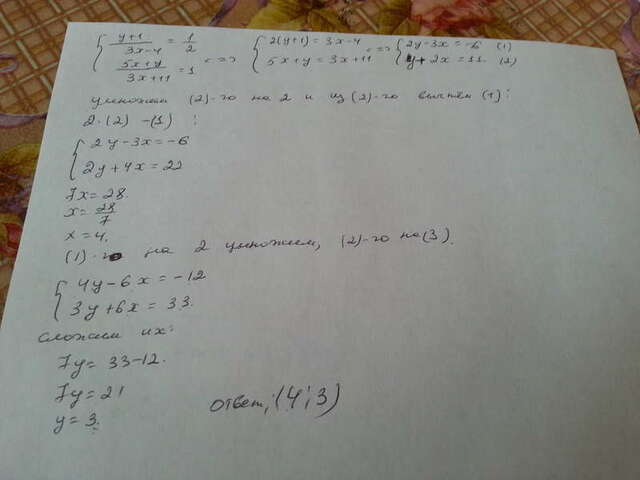 { (y+1)/(3x-4) = 1/2 <=> { 2(y+1) = 3x-4 <=> { 2y-3x = -6 (1)
{ (5x+y)/(3x+11) = 1 { 5x+y = 3x+11 { y+2x = 11. (2)
умножаем (2)-го на 2 и из (2)-го вычтем (1):
2·(2) -(1) :
{ 2y-3x = -6
{ 2y+4x = 22
7x = 28.
x = 28/7
x = 4.
(1)-го на 2 умножаем, (2)-го на (3).
{ 4y-6x = -12
{ 3y+6x = 33.
сложим их:
7y = 33-12.
7y = 21
y = 3.
Ответ: (4;3)